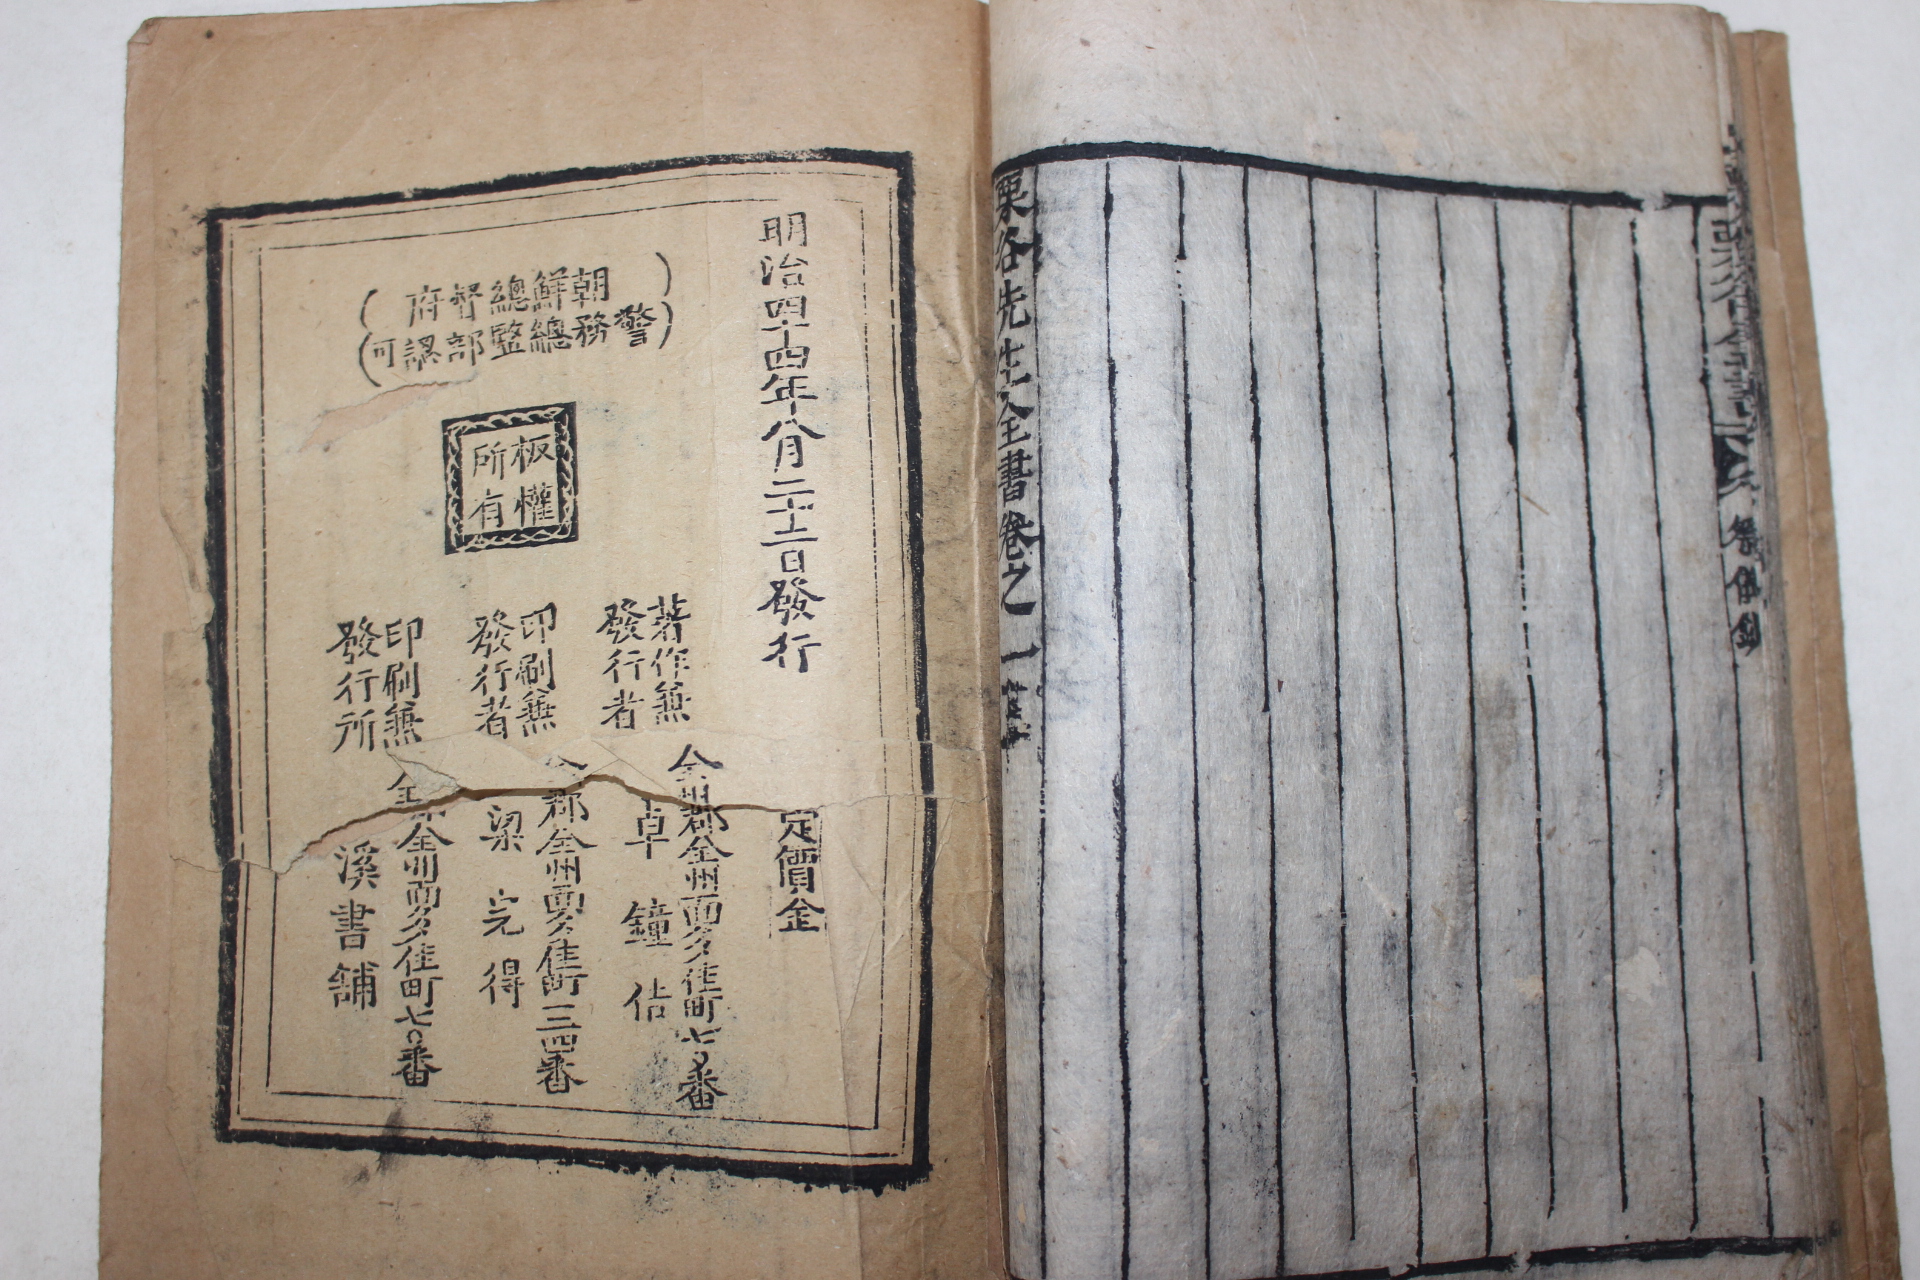 栗谷先生全書卷之一
祭儀鈔
明治四十四年八月二十二日發行
定價金
朝鮮總督府
警務總監部認可
板權
所有
著作兼
發行者
全州郡全州面多佳町七〇番
卓鐘佶
印刷兼
發行者
全州面多佳町一三四番
梁完得
印刷兼
發行所
全州面多佳町七〇番
溪書舖